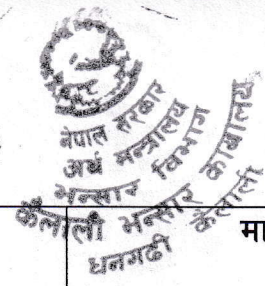 नेपाल सरकार
अर्थ मन्त्रालय
भन्सार विभाग
कैलाली भन्सार कार्यालय
धनगढी कैलाली
मा